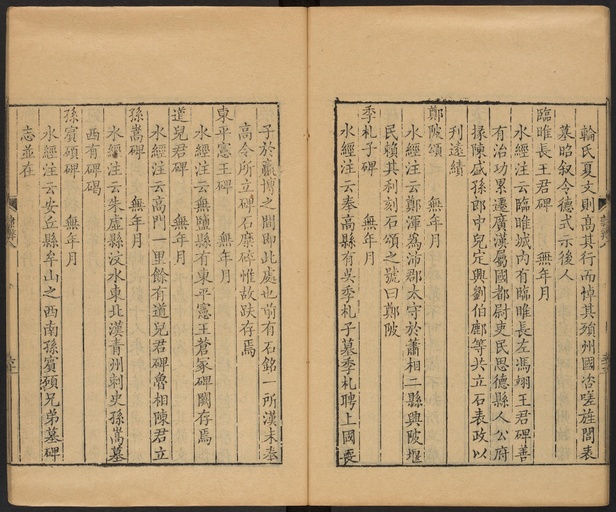 輪氏夏文則高其行而悼其殞州國咨嗟旌閭表
墓昭叙令德式示後人
臨睢長王君碑 無年月
水經注云臨睢城內有臨睢長左馮翊王君碑善
有治功累遷廣漢屬國都尉吏民思德縣人公府
掾陳盛孫郎中兒定興劉伯鄜等共立石表政以
刋遠績
鄭陂頌 無年月
水經注云鄭渾為沛郡太守於蕭相二縣興陂堰
民賴其利刻石頌之號曰鄭陂
季札子碑 無年月
水經注云奉高縣有吳季札子墓季札聘上國喪
子於嬴博之間即此處也前有石銘一所漢末奉
高令所立碑石糜碎惟故趺存焉
東平憲王碑 無年月
水經注云無鹽縣有東平憲王蒼冢碑闕存焉
道兒君碑 無年月
水經注云高門一里餘有道兒君碑魯相陳君立
孫嵩碑 無年月
水經注云朱虛縣汶水東北漢青州刺史孫嵩墓
西有碑碣
孫賓碩碑 無年月
水經注云安丘縣牟山之西南孫賓碩兄弟墓碑
志並在